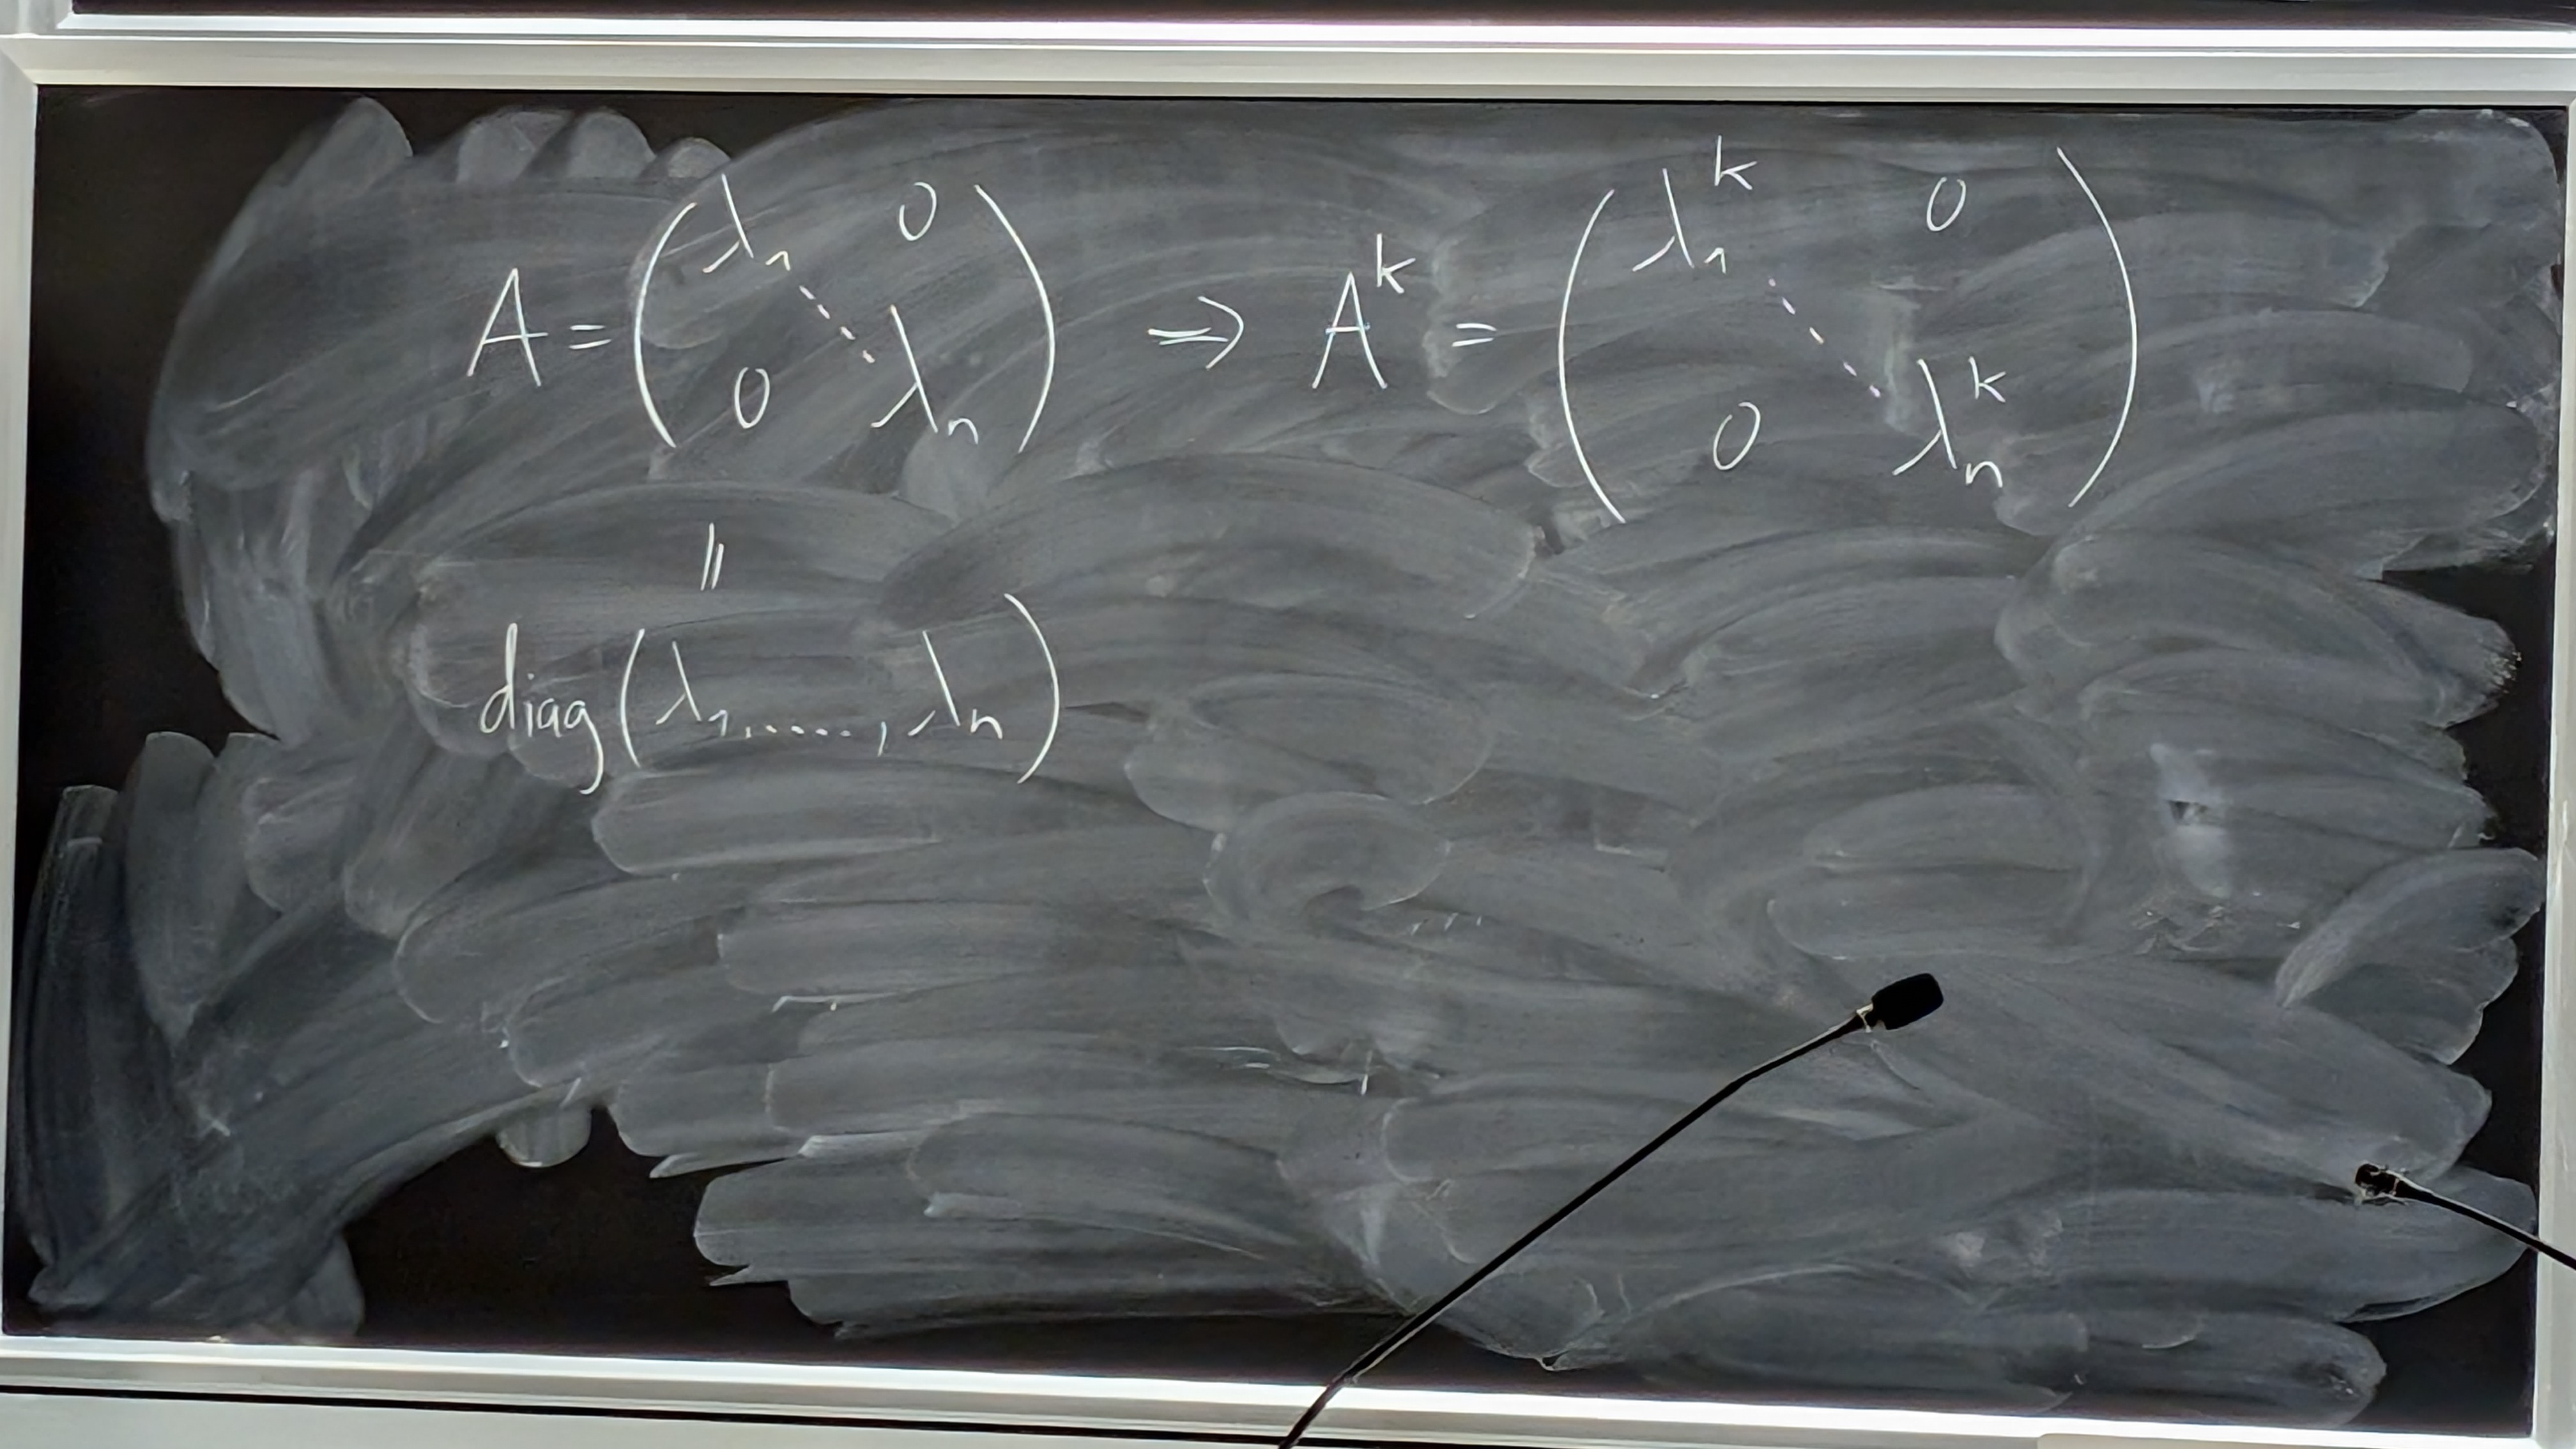 A = ( λ₁ 0 ⋱ 0 λₙ ) ⇒ Aᵏ = ( λ₁ᵏ 0 ⋱ 0 λₙᵏ )
||
diag(λ₁, ....., λₙ)